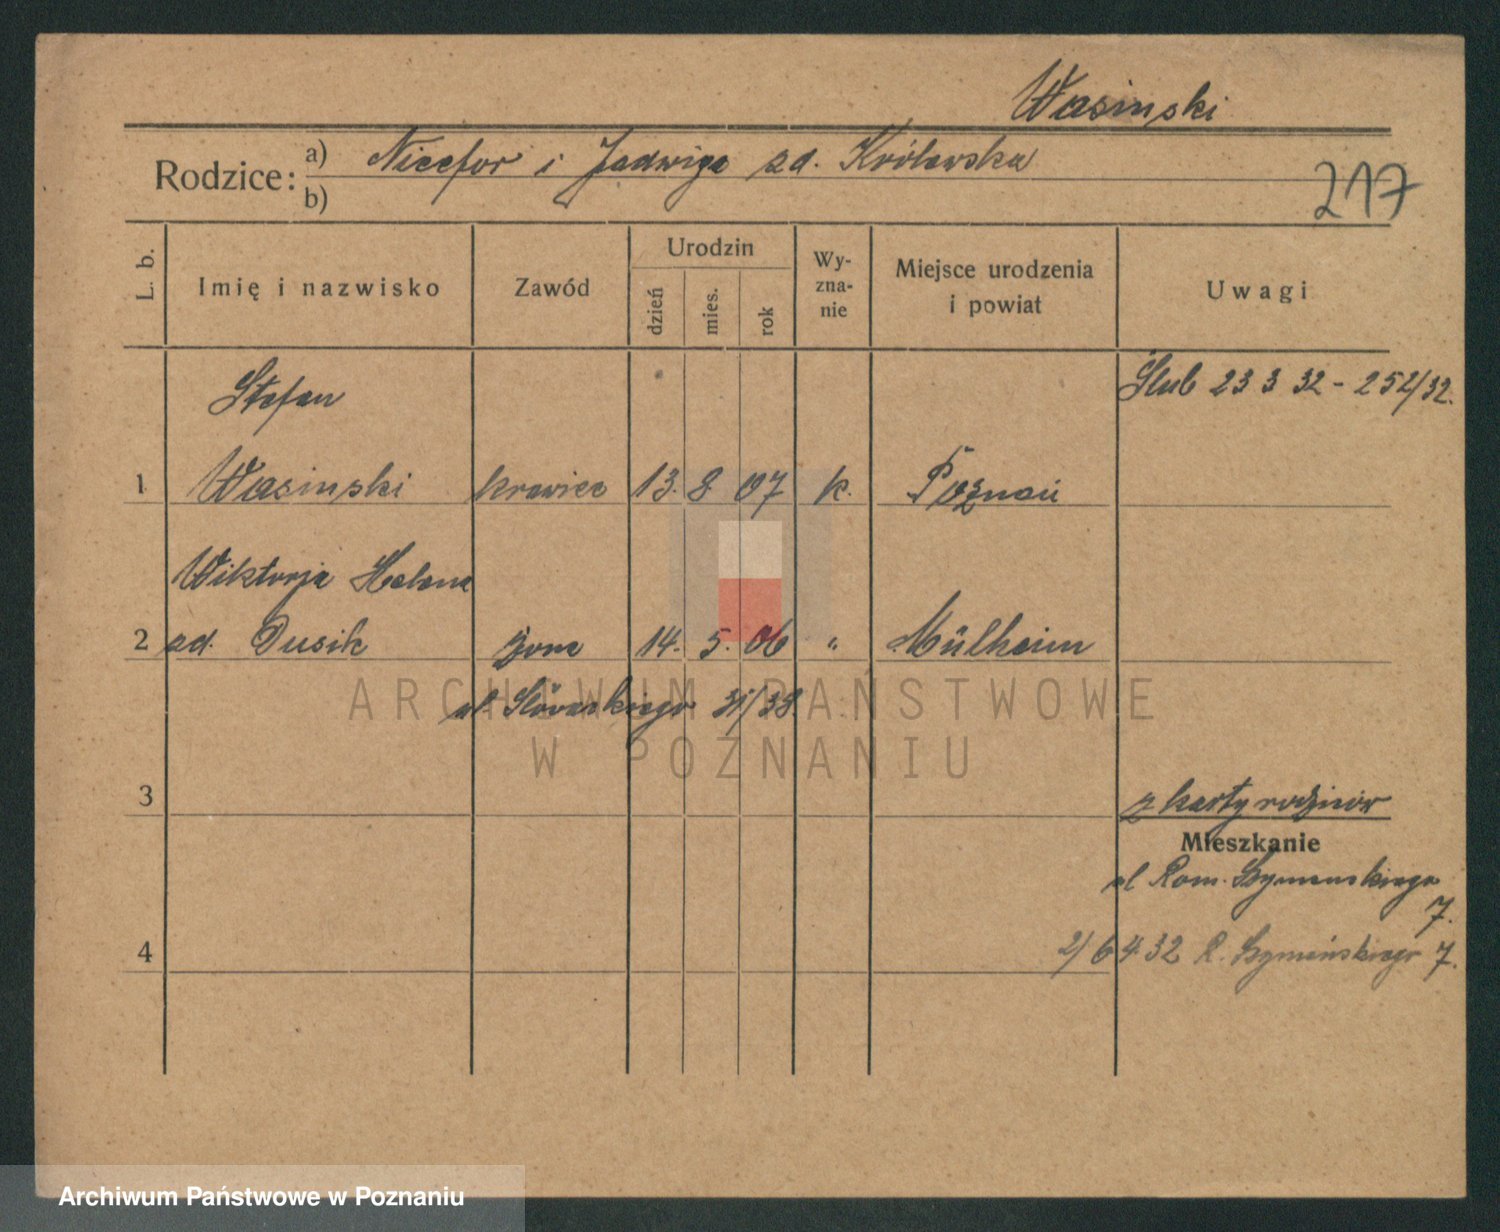 Wasinski
Rodzice:
a) Nicefor i Jadwiga zd. Królewska
b)
217
L. b.
Imię i nazwisko
Zawód
Urodzin
dzień
mies.
rok
Wy-
zna-
nie
Miejsce urodzenia
i powiat
Uwagi
Stefan
Ślub 23 3 32 - 252/32.
1 Wasinski krawiec 13. 8. 07 k. Poznań
Wiktorja Helena
2 zd. Dusik żona 14. 5. 06 " Mülheim
ul. Słowackiego 31/38
ARCHIWUM PAŃSTWOWE
W POZNANIU
3
z karty rodziców
Mieszkanie
ul Rom. Szymanskiego
7.
4
2/6 4 32 R. Szymańskiego 7.
Archiwum Państwowe w Poznaniu